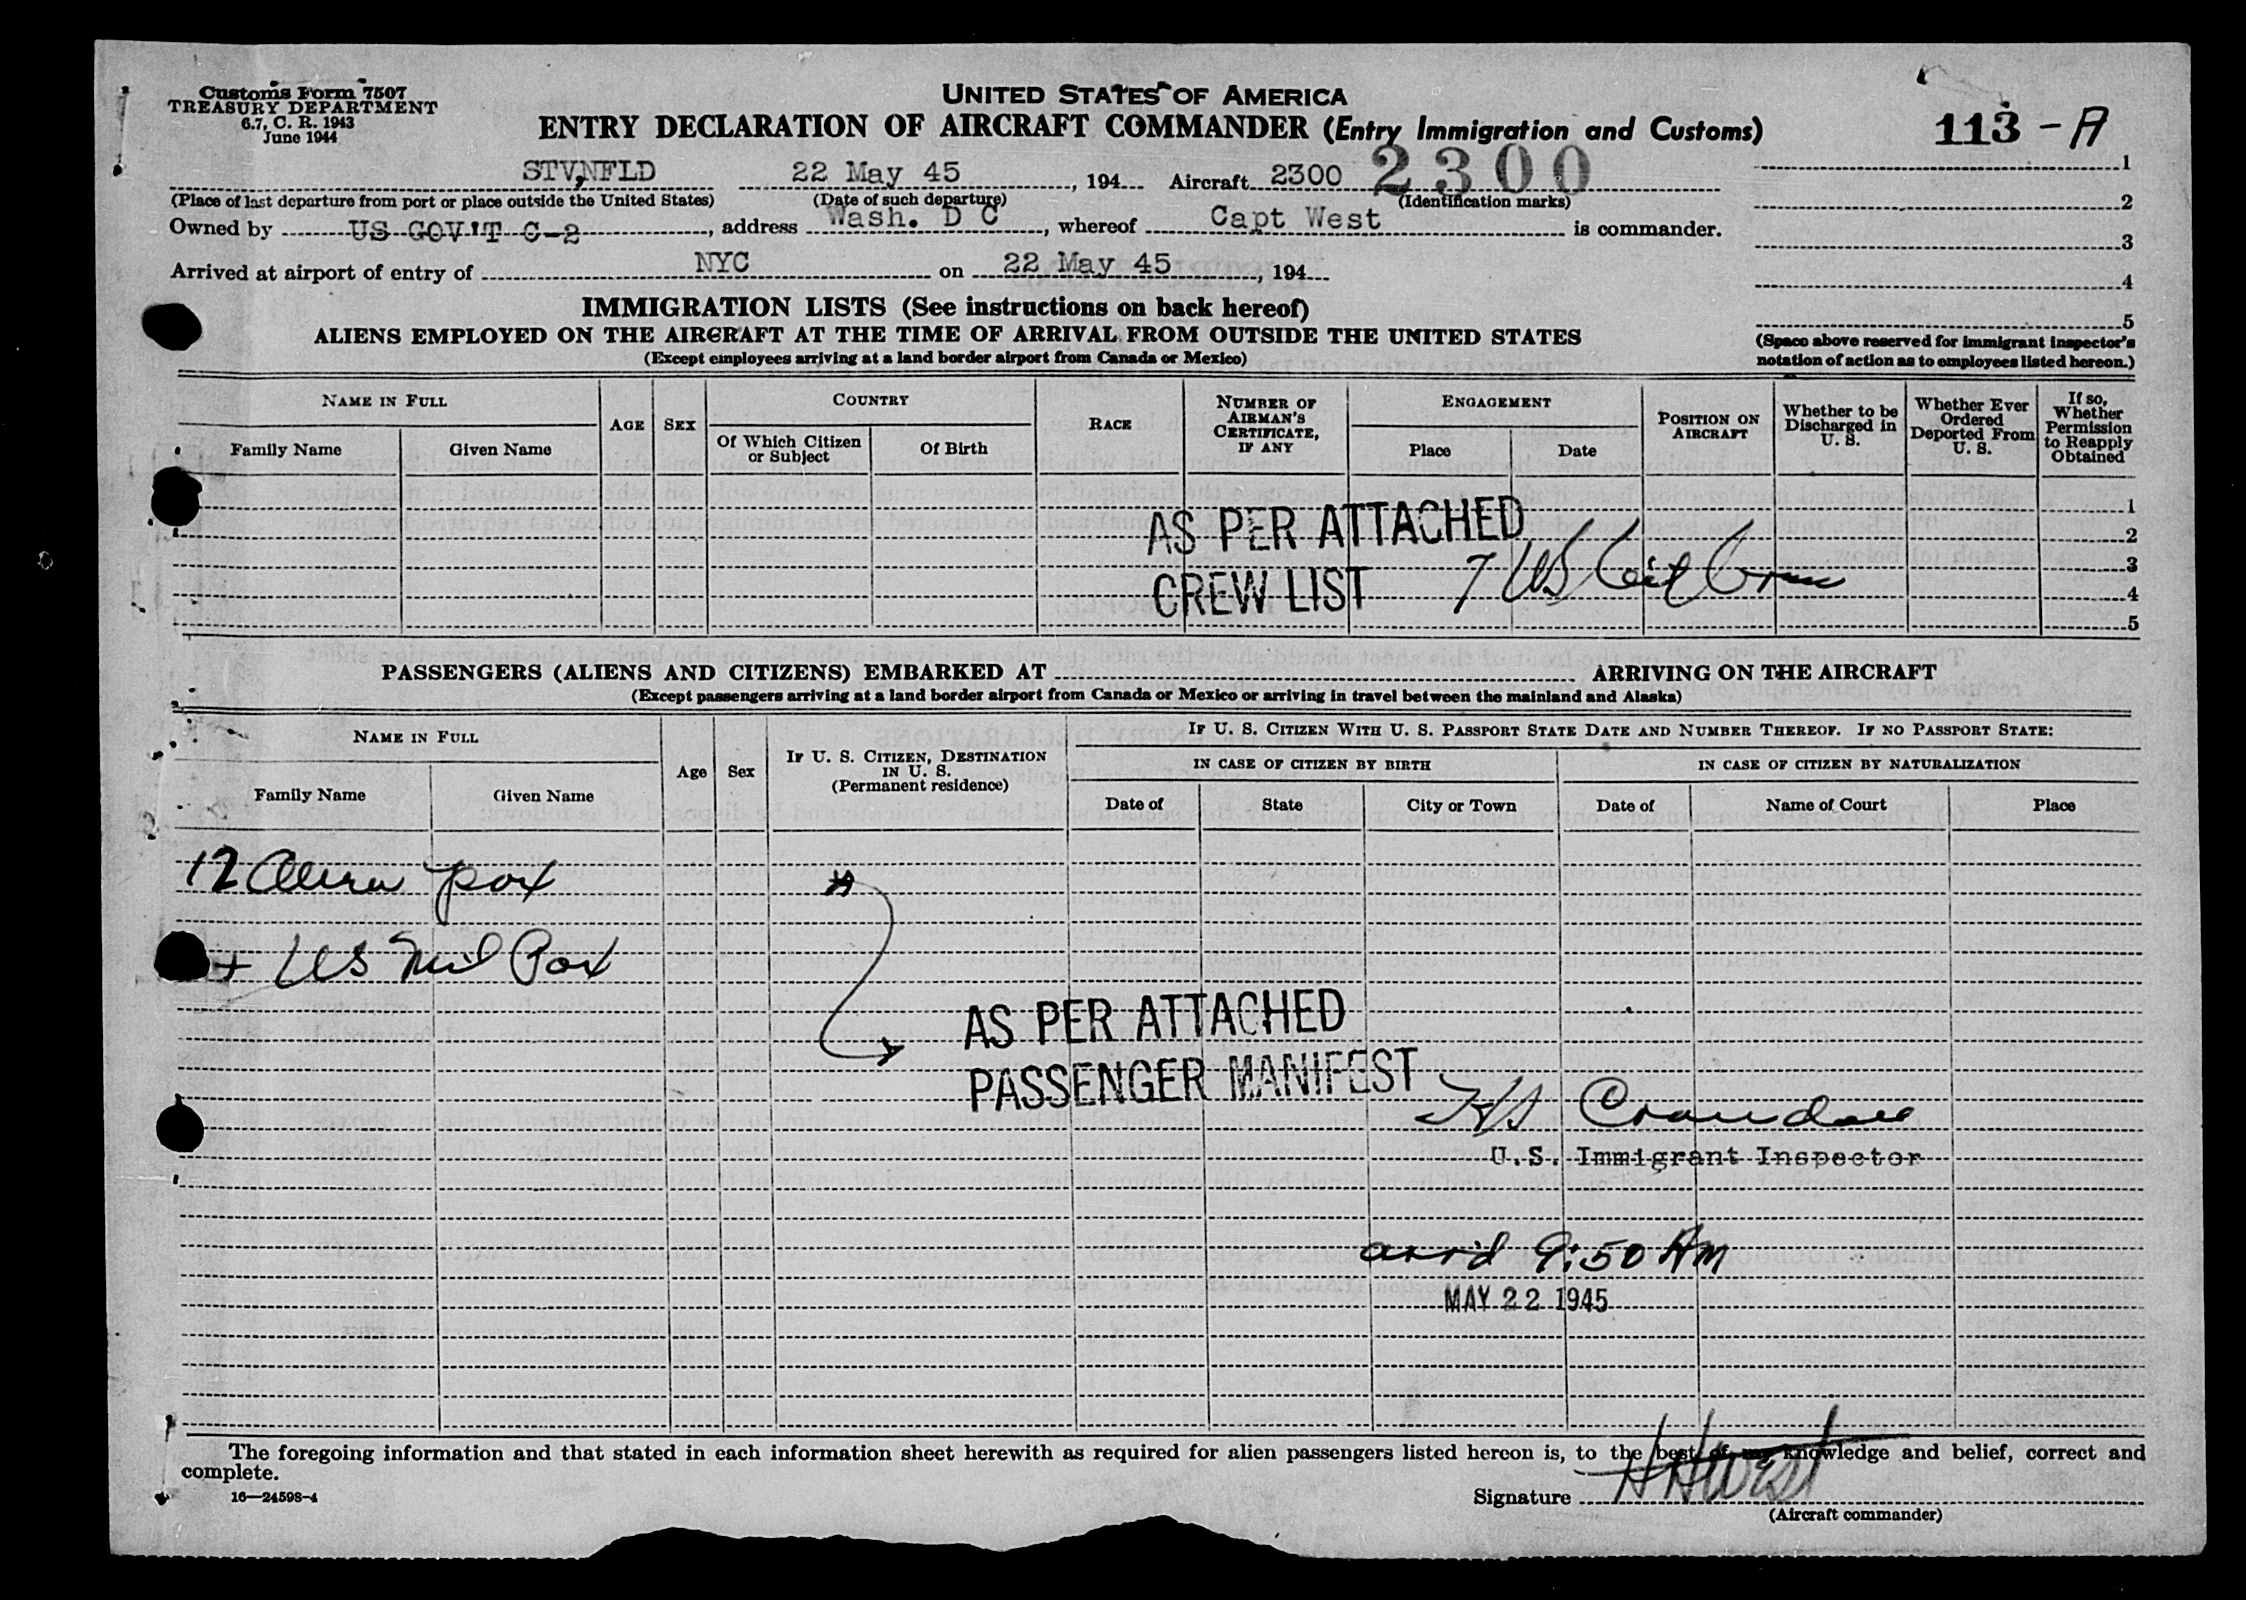 Customs Form 7507
TREASURY DEPARTMENT
6.7, C. R. 1943
June 1944
UNITED STATES OF AMERICA
ENTRY DECLARATION OF AIRCRAFT COMMANDER (Entry Immigration and Customs)
113 - A
STV,NFLD 22 May 45, 194 Aircraft 2300 2300
(Place of last departure from port or place outside the United States) (Date of such departure) (Identification marks)
Owned by US GOV'T C-2, address Wash. D C, whereof Capt West is commander.
Arrived at airport of entry of NYC on 22 May 45, 194
1
2
3
4
5
(Space above reserved for immigrant inspector's
notation of action as to employees listed hereon.)
IMMIGRATION LISTS (See instructions on back hereof)
ALIENS EMPLOYED ON THE AIRCRAFT AT THE TIME OF ARRIVAL FROM OUTSIDE THE UNITED STATES
(Except employees arriving at a land border airport from Canada or Mexico)
NAME IN FULL
Family Name
Given Name
AGE
SEX
COUNTRY
Of Which Citizen
or Subject
Of Birth
RACE
NUMBER OF
AIRMAN'S
CERTIFICATE,
IF ANY
ENGAGEMENT
Place
Date
POSITION ON
AIRCRAFT
Whether to be
Discharged in
U. S.
Whether Ever
Ordered
Deported From
U. S.
If so,
Whether
Permission
to Reapply
Obtained
1
2
3
4
5
AS PER ATTACHED
CREW LIST
7 US Cit Crew
PASSENGERS (ALIENS AND CITIZENS) EMBARKED AT ARRIVING ON THE AIRCRAFT
(Except passengers arriving at a land border airport from Canada or Mexico or arriving in travel between the mainland and Alaska)
NAME IN FULL
Family Name
Given Name
Age
Sex
IF U. S. CITIZEN, DESTINATION
IN U. S.
(Permanent residence)
IF U. S. CITIZEN WITH U. S. PASSPORT STATE DATE AND NUMBER THEREOF. IF NO PASSPORT STATE:
IN CASE OF CITIZEN BY BIRTH
IN CASE OF CITIZEN BY NATURALIZATION
Date of
State
City or Town
Date of
Name of Court
Place
12 Alien pax
+ US Mil Pax
AS PER ATTACHED
PASSENGER MANIFEST
Crandall
U.S. Immigrant Inspector
arr'd 9:50 AM
MAY 22 1945
The foregoing information and that stated in each information sheet herewith as required for alien passengers listed hereon is, to the best of my knowledge and belief, correct and
complete.
16—24598-4
Signature H H West
(Aircraft commander)